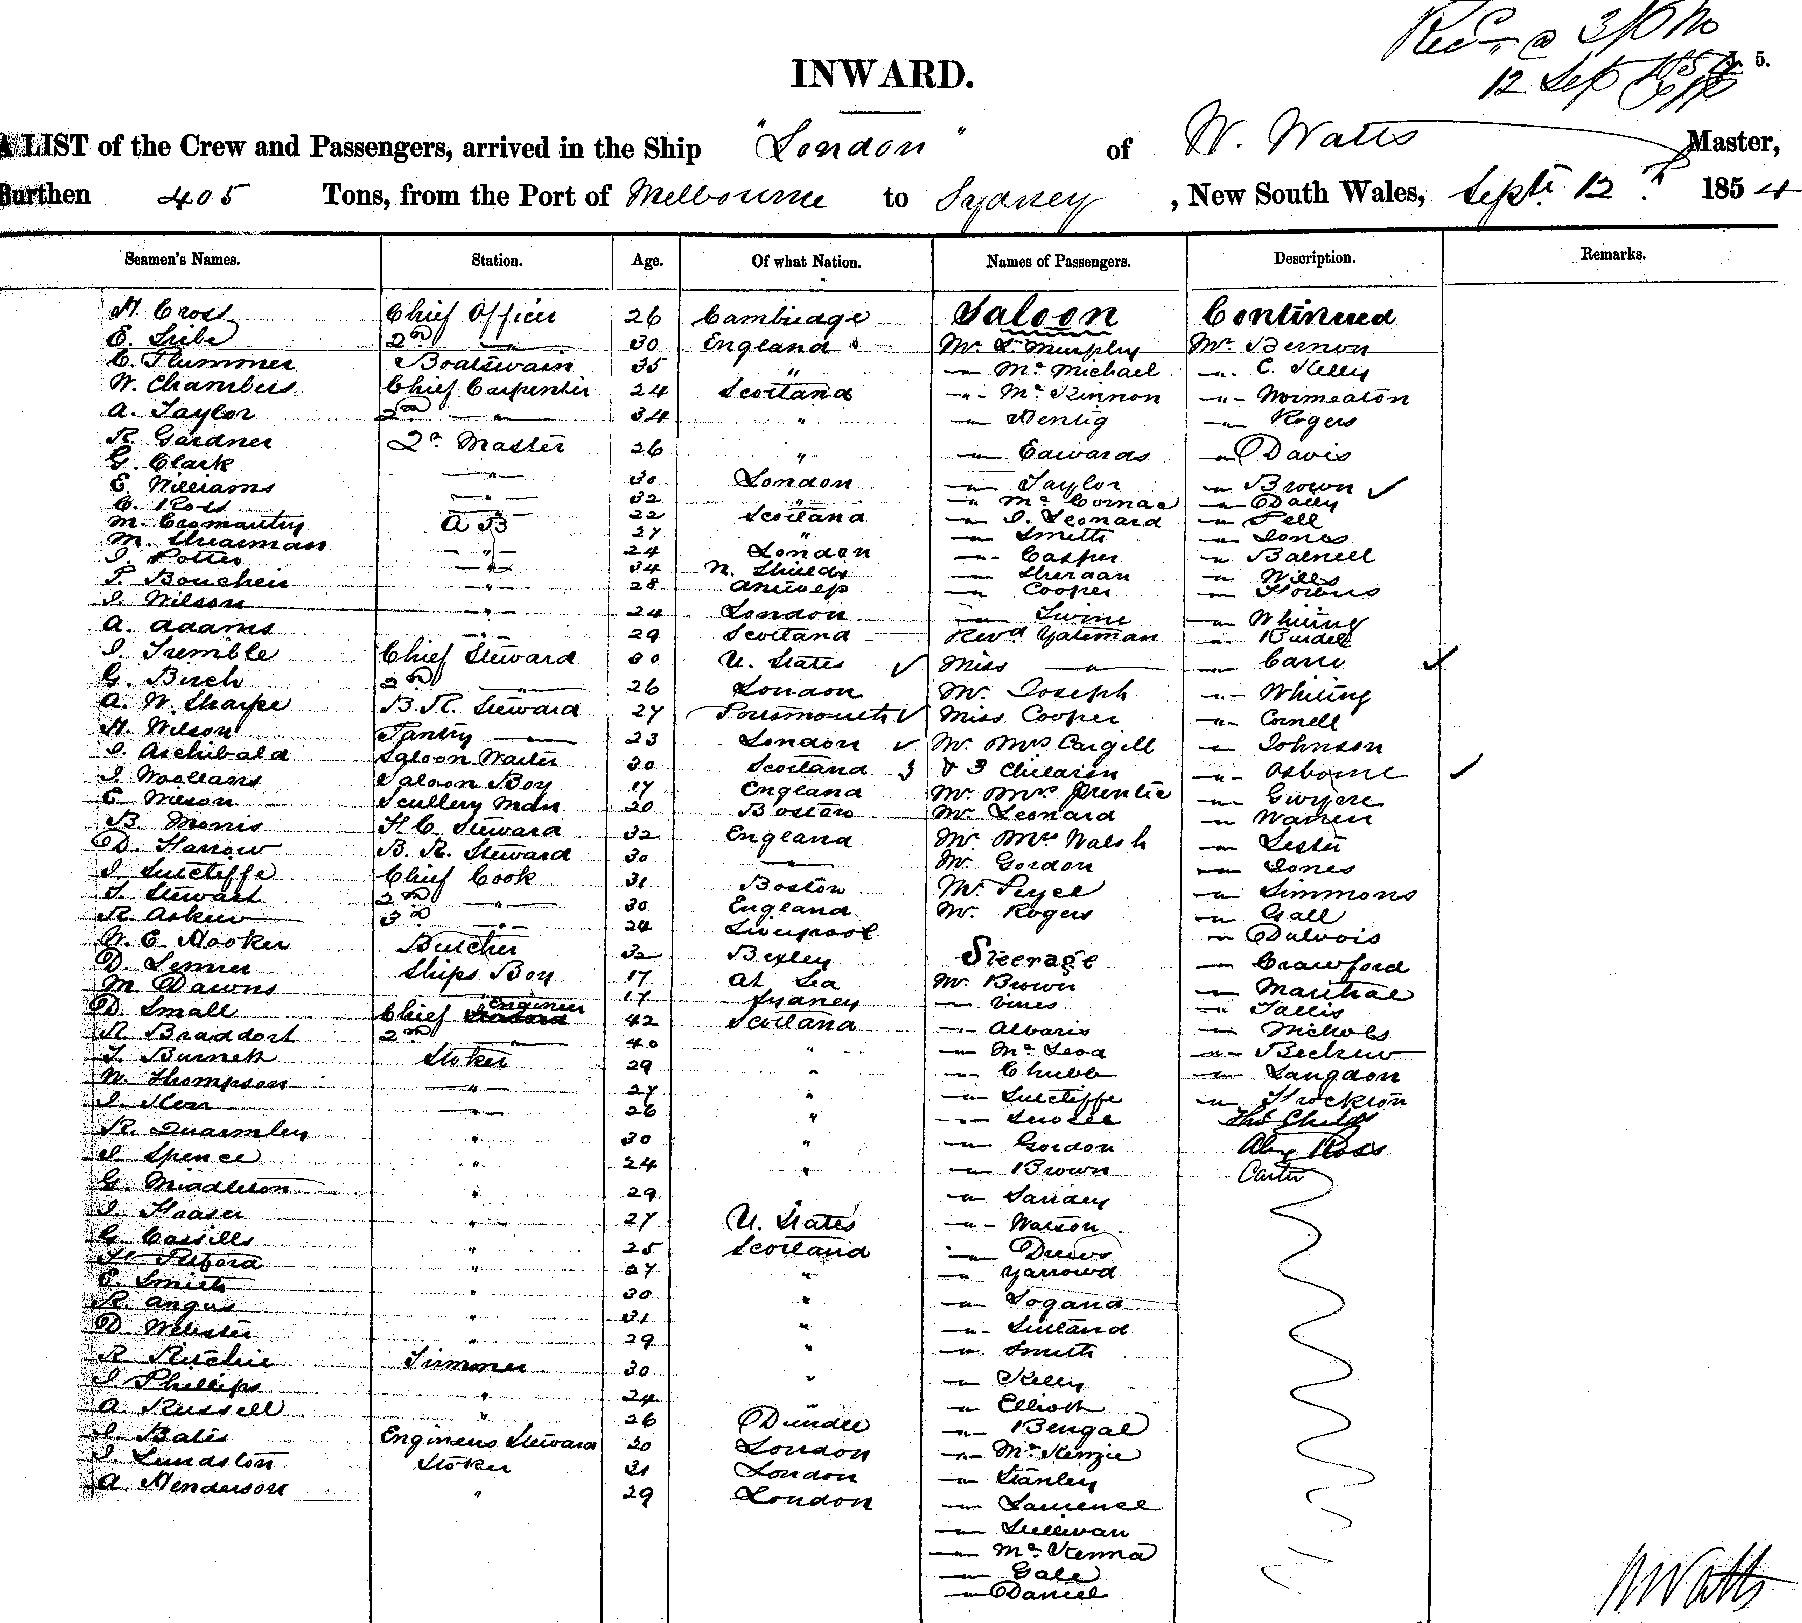 Recd @ 3 PM
12 Sep 1854
5.
INWARD.
A LIST of the Crew and Passengers, arrived in the Ship "London" of W. Watts Master,
Burthen 405 Tons, from the Port of Melbourne to Sydney, New South Wales, Septr 12th 1854
Seamen's Names. Station. Age. Of what Nation. Names of Passengers. Description. Remarks.
H. Cross Chief Officer 26 Cambridge Saloon Continued
E. 2nd " 30 England Mr. Murphy Mr. Bernon
C. Plummer Boatswain 35 " " McMichael " C. Kelly
W. Chambers Chief Carpenter 24 Scotland " McKinnon " Normeaton
A. Taylor 2nd " 34 " " Hentig " Rogers
R. Gardner 2r Master 26 " " Edwards " Davis
G. Clark " 30 London " Taylor " Brown ✓
E. Williams " 32 " " McCormac " O'Dally
C. Ross A B 22 Scotland " J. Leonard " Pell
M. Cromartey 27 " " Smith " Jones
M. Shearman " 24 London " Casper " Balnell
J. Potter " 34 N. Shields " Sheridan " Wills
P. Boucheir " 28 Antwep " Cooper
J. Wilson " 24 London " " Whiting
A. Adams " 29 Scotland Revd Yateman " Burdell
J. Tremble Chief Steward 30 U. States ✓ Miss " " Carr ✓
G. Birch 2nd " 26 London Mr. Joseph " Whiting
A. W. Sharpe B. R. Steward 27 Portsmouth ✓ Miss Cooper " Cornell
H. Wilson Pantry " 23 London ✓ Mr. Mrs Cargill " Johnson
J. Archibald Saloon Waiter 20 Scotland 3 & 3 Children " Osborne ✓
J. Woollans Saloon Boy 17 England Mr. Mrs Prentice " Gwyere
E. Wilson Scullery Man 20 Boston Mr. Leonard " Warren
B. Morris F. C. Steward 32 England Mr. Mrs Walsh " Lester
D. Harrow B. R. Steward 30 " Mr. Gordon " Jones
J. Sutcliffe Chief Cook 31 Boston Mr. Pryce " Simmons
T. Stewart 2nd " 30 England Mr. Rogers " Gall
R. Askew 3rd " 24 Liverpool " Dulvois
W. E. Hooker Butcher 32 Bexley Steerage " Crawford
D. Lenner Ships Boy 17 At Sea Mr. Brown " Martial
M. Dawns 17 Sydney " Vines " Tallis
D. Small Chief Engineer 42 Scotland " Albaris " Nichols
R. Braddort 2nd " 40 " " McLeod " Beckew
T. Burnett Stoker 29 " " Chubb " Langdon
W. Thompson " 27 " " Sutcliffe " Stockton
J. Kerr " 26 " " Thos Childs
R. Quarmley " 30 " " Gordon Alex Ross
J. Spence " 24 " " Brown Carter
G. Middleton " 29 " Sandey
J. Haaser " 27 U. States " Watson
G. Cassills " 25 Scotland " Drews
H. Pilford " 27 " " Yarrowd
E. Smith " 30 " " Logand
R. Angus " 31 " " Sutland
D. Webster " 29 " " Smith
R. Ritchie Trimmer 30 " " Kelly
J. Phillips " 24 " " Elliott
A. Russell " 26 Dundee " Bengal
J. Bates Engineers Steward 20 London " McKenzie
J. Lundston Stoker 31 London " Stanley
A. Henderson " 29 London " Lawrence
" Sullivan
" McKenna
" Gale
" Daniel
W Watts